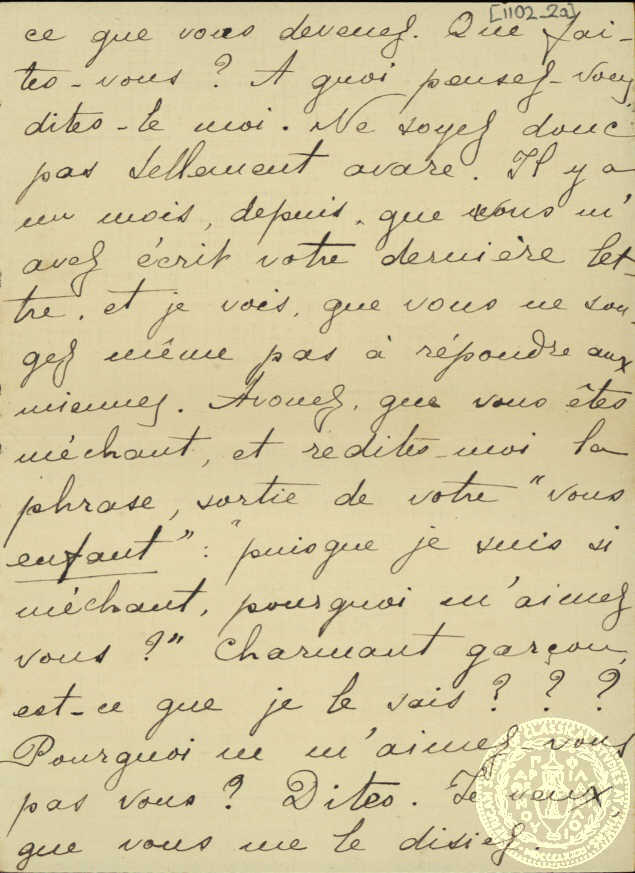 [1102_2a]
ce que vous devenez. Que fai-
tes-vous ? A quoi pensez-vous,
dites-le moi. Ne soyez donc
pas tellement avare. Il y a
un mois, depuis, que vous m'
avez écrit votre dernière let-
tre, et je vois, que vous ne son-
gez même pas à répondre aux
miennes. Avouez, que vous êtes
méchant, et redites-moi la
phrase, sortie de votre "vous
enfant" : "puisque je suis si
méchant, pourquoi m'aimez
vous ?" Charmant garçon,
est-ce que je le sais ? ? ?
Pourquoi ne m'aimez-vous
pas vous ? Dites. Je veux,
que vous me le disiez.